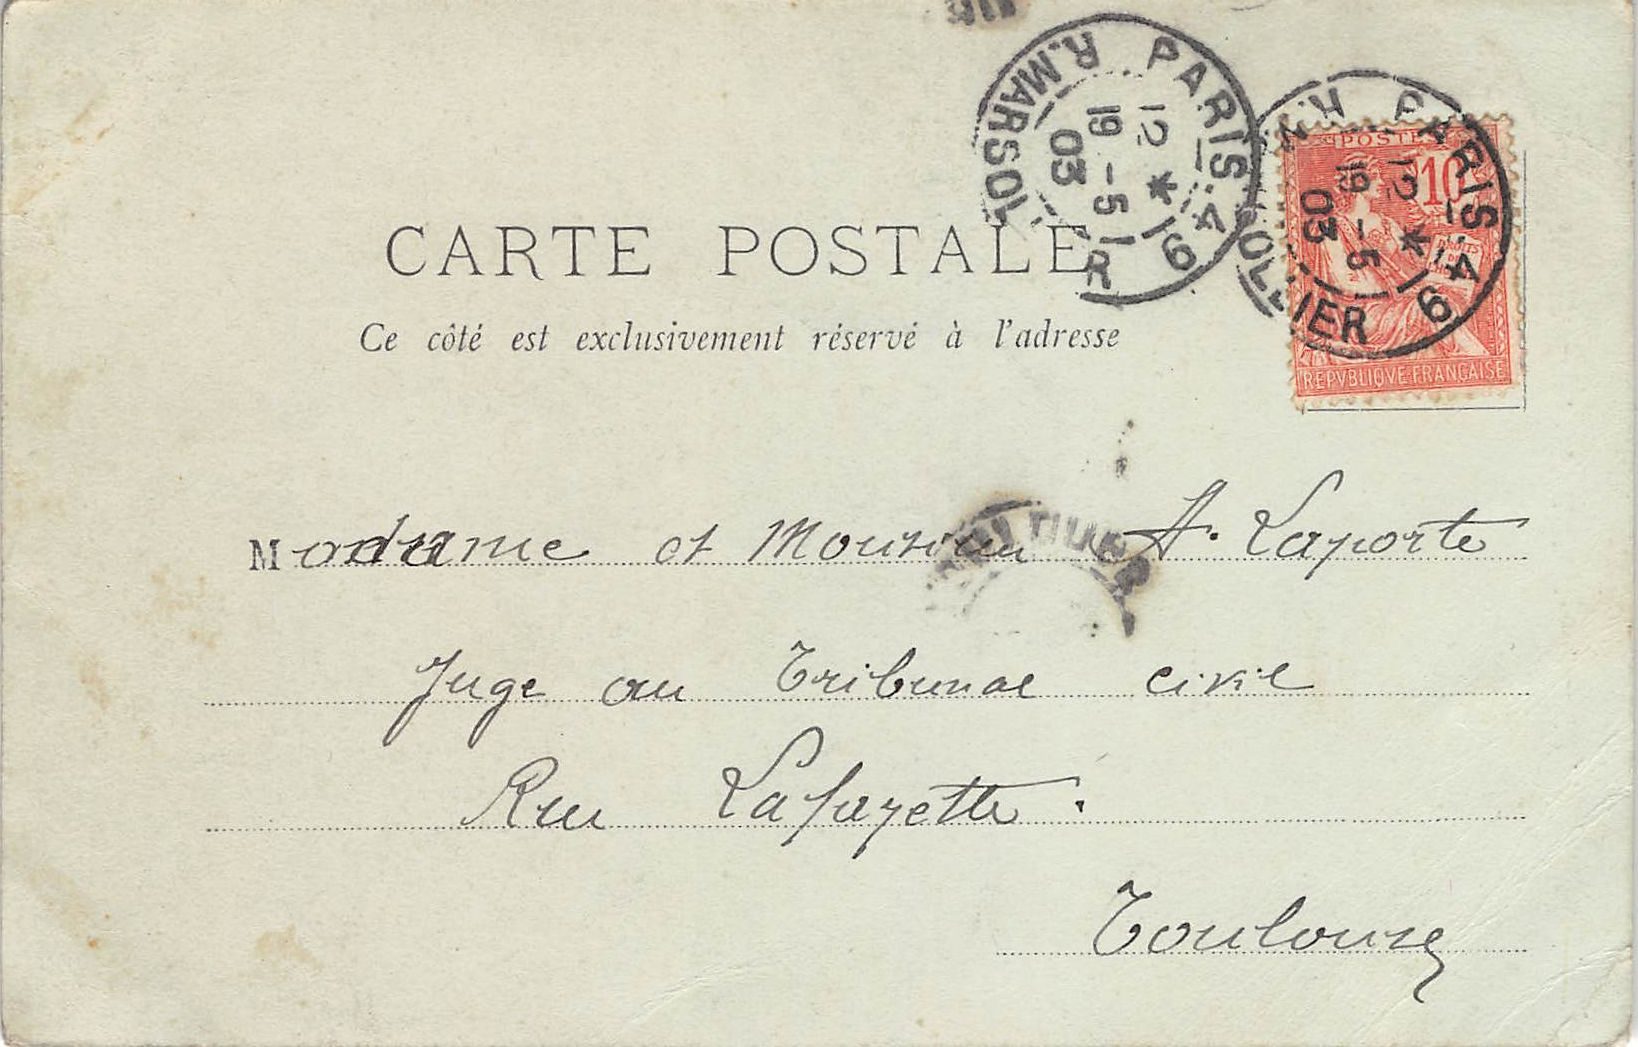 PARIS.4
R. MARSOLLIER
12*
19-5
03
PARIS.4
12*
19-5
03
POSTES
10
REPVBLIQVE FRANCAISE
CARTE POSTALE
Ce côté est exclusivement réservé à l'adresse
Madame et Monsieur A. Laporte
Juge au Tribunal civil
Rue Lafayette.
Toulouse